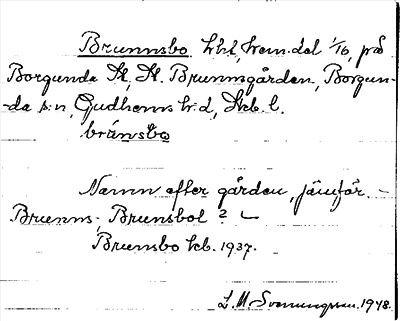 Brunnsbo lht, hem.del 1/16, på
Borgunda St, St. Brunnsgården, Borgun-
da sn, Gudhems hd, Skb. l.
brúnsbo
Namn efter gården, jämför
Brunns-, Brunsbol? ~
Brunsbo kb. 1937.
L. M. Svenungsson. 1948.